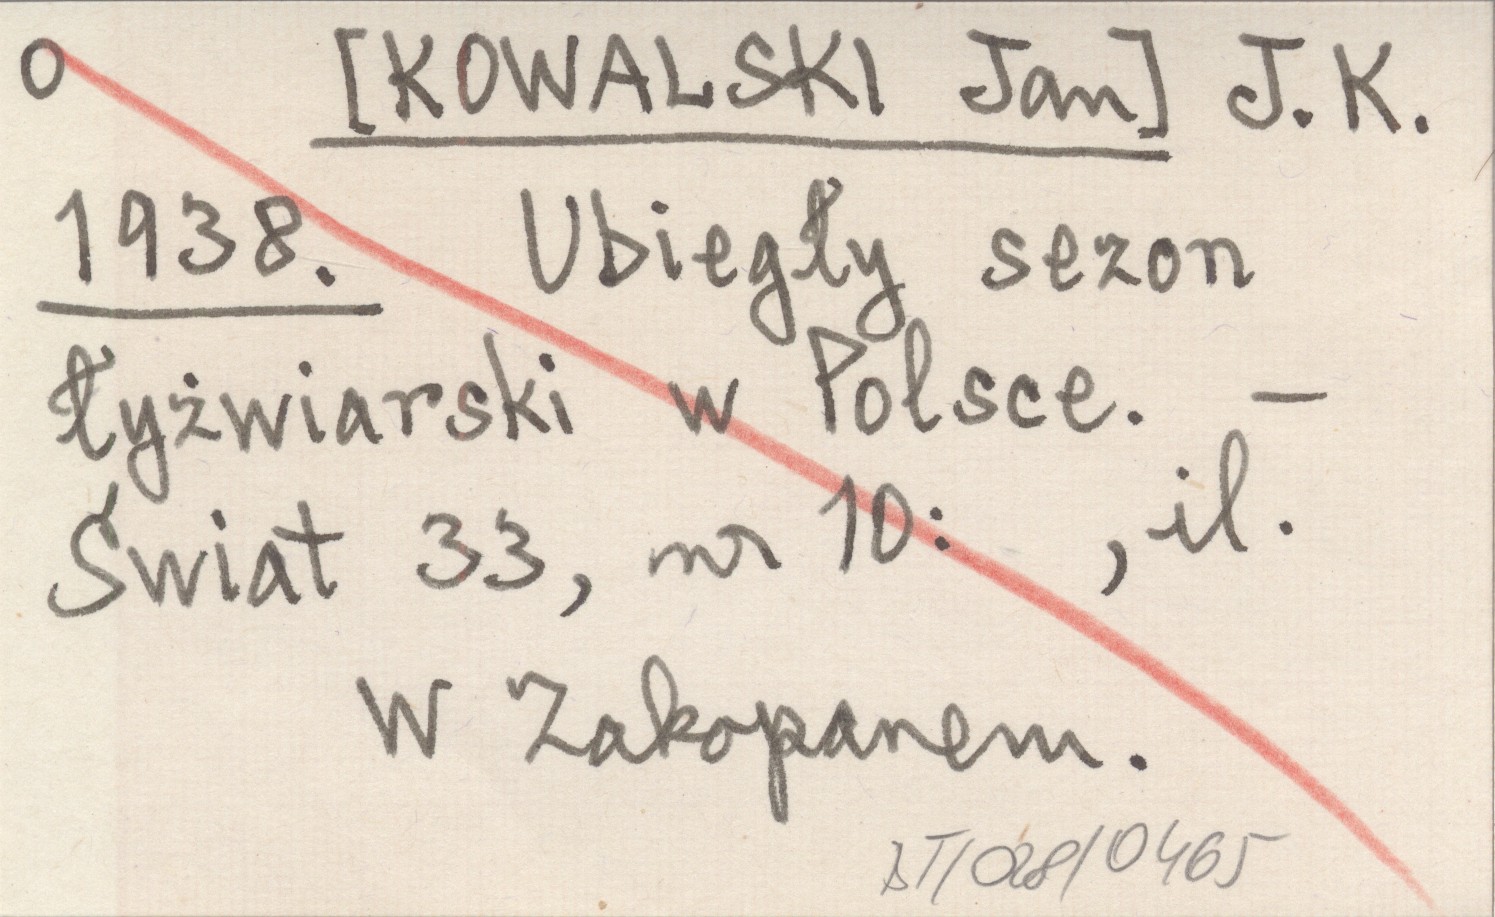 O [KOWALSKI Jan] J.K.
1938. Ubiegły sezon
łyżwiarski w Polsce. —
Świat 33, nr 10: , il.
W Zakopanem.
AT/028/0465